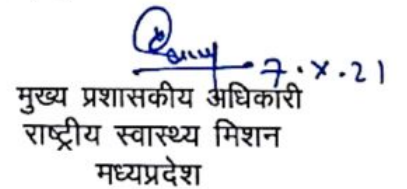 7.X.21
मुख्य प्रशासकीय अधिकारी
राष्ट्रीय स्वास्थ्य मिशन
मध्यप्रदेश